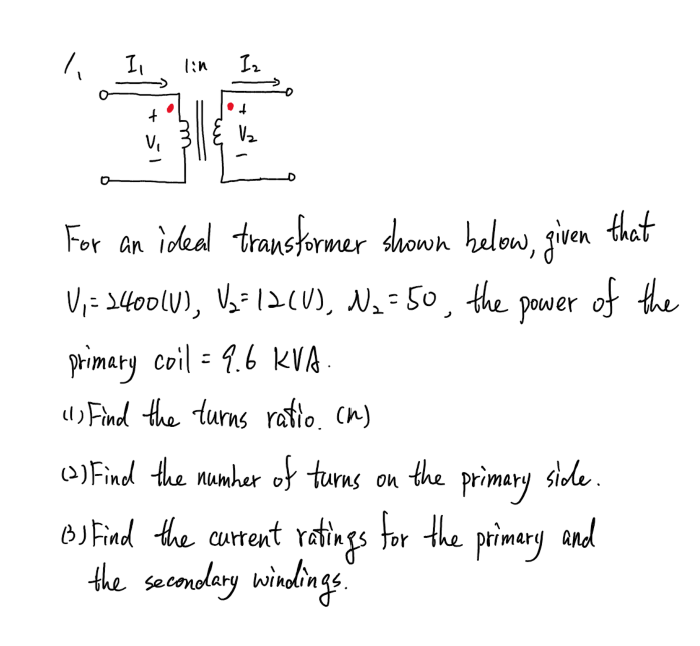 1.
I1 1:n I2
+ +
V1 V2
- -
For an ideal transformer shown below, given that
V1 = 2400(V), V2 = 12(V), N2 = 50, the power of the
primary coil = 9.6 KVA.
(1) Find the turns ratio. (n)
(2) Find the number of turns on the primary side.
(3) Find the current ratings for the primary and
the secondary windings.